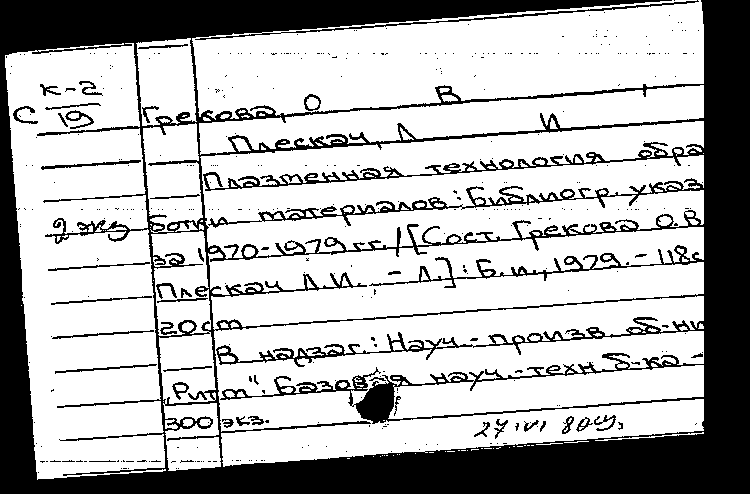 К-2
С 19 Грекова, О В
Плескач, Л И
Плазменная технология обра
2 экз ботки материалов: Библиогр. указ
за 1970-1979 гг. / [Сост. Грекова О.В
Плескач Л.И. - Л.]: Б.и., 1979. - 118с
20 см.
В надзаг.: Науч.- произв. об-ни
„Ритм": Базовая науч.-техн. б-ка. -
300 экз.
27.VI 80